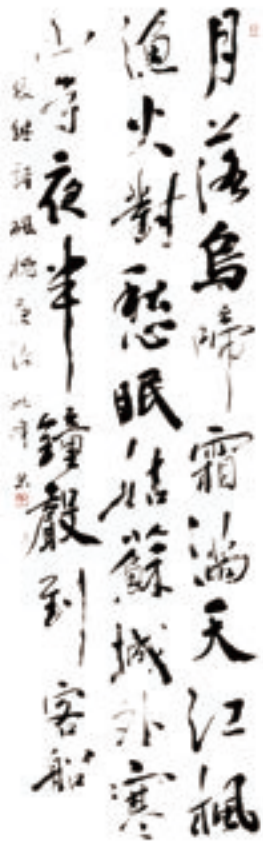 月落烏啼霜満天江楓
漁火對愁眠姑蘇城外寒
山寺夜半鐘聲到客船
張継詩楓橋夜泊